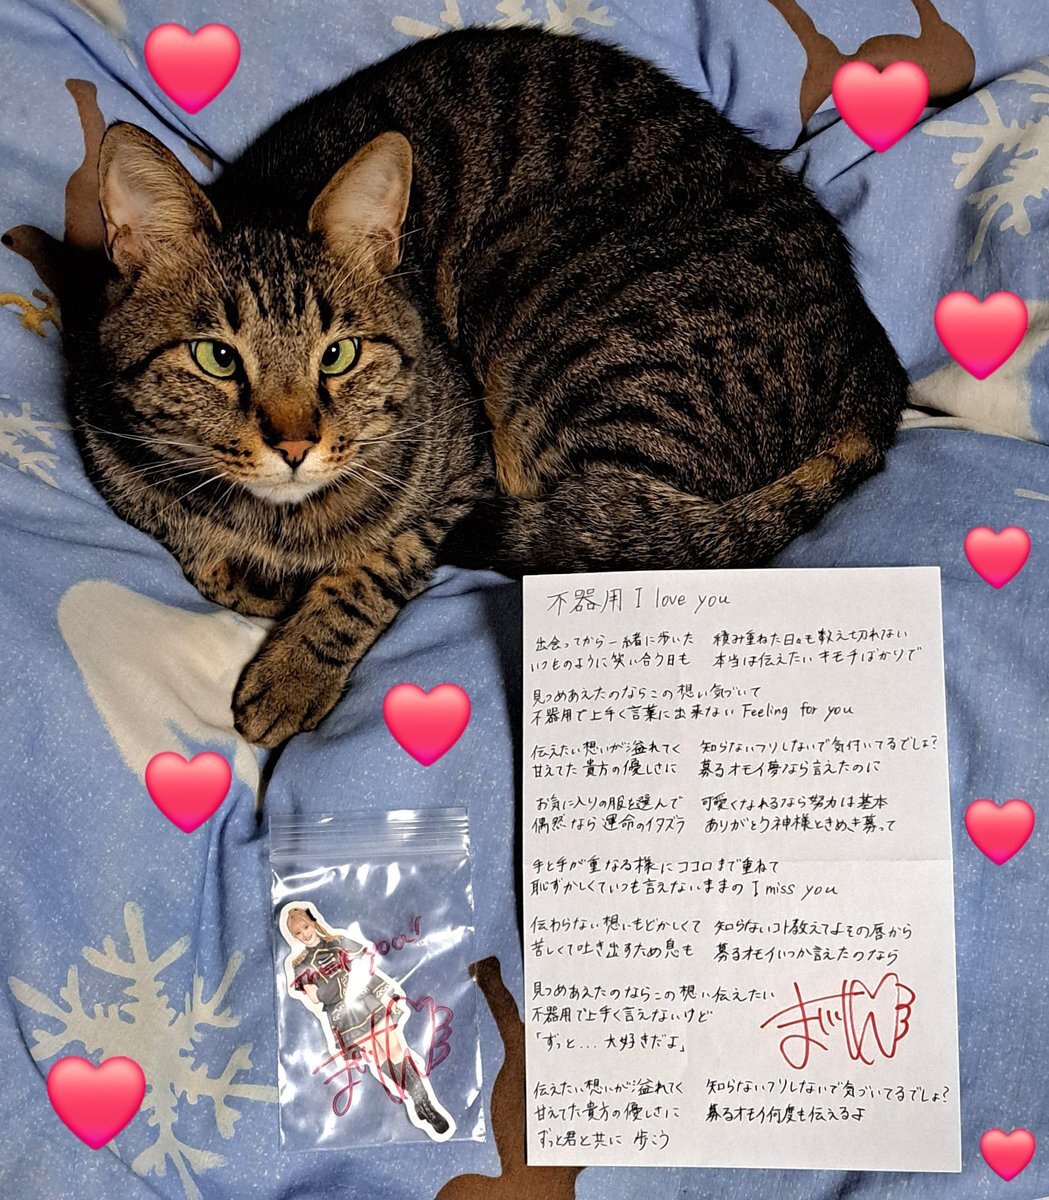 不器用 I love you
出会ってから一緒に歩いた 積み重ねた日々も数え切れない
いつものように笑い合う日も 本当は伝えたいキモチばかりで
見つめあえたのならこの想い気づいて
不器用で上手く言葉に出来ない Feeling for you
伝えたい想いが溢れてく 知らないフリしないで気付いてるでしょ?
甘えてた貴方の優しさに 募るオモイ夢なら言えたのに
お気に入りの服を選んで 可愛くなれるなら努力は基本
偶然なら運命のイタズラ ありがとう神様ときめき募って
手と手が重なる様にココロまで重ねて
恥ずかしくていつも言えないままの I miss you
伝わらない想いもどかしくて 知らないコト教えてよその唇から
苦しくて吐き出すため息も 募るオモイいつか言えたのなら
見つめあえたのならこの想い伝えたい
不器用で上手く言えないけど
「ずっと...大好きだよ」
伝えたい想いが溢れてく 知らないフリしないで気づいてるでしょ?
甘えてた貴方の優しさに 募るオモイ何度も伝えるよ
ずっと君と共に 歩こう
Thank you!